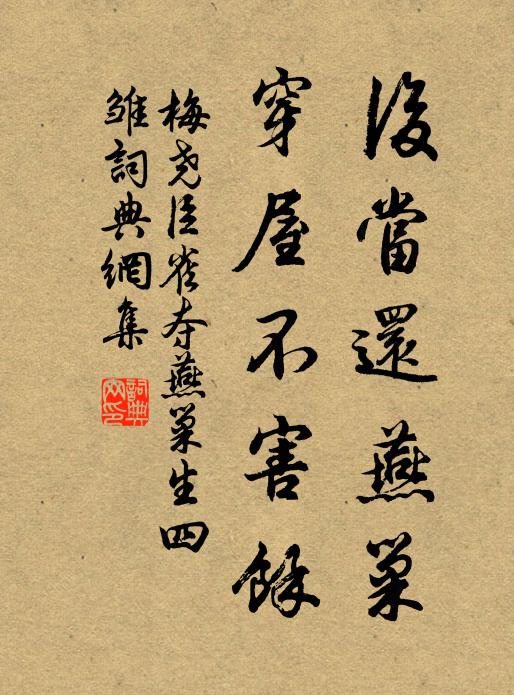 後當還燕巢
穿屋不害餘
梅堯臣雀夺燕巢生四
雏詞典網集
詞典網印